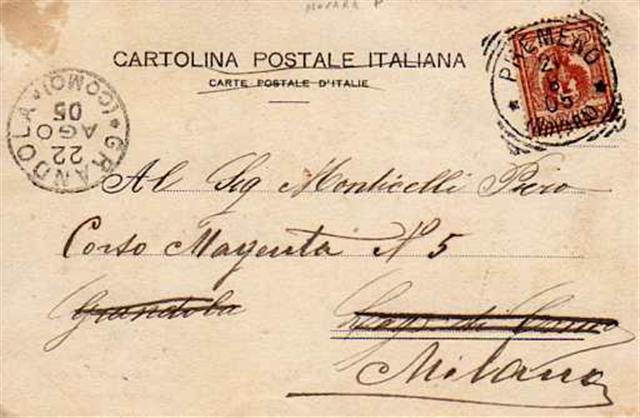 NOVARA P
CARTOLINA POSTALE ITALIANA
CARTE POSTALE D'ITALIE
PREMENO
21 8 05
(NOVARA)
GRANDOLA (COMO)
22
AGO
05
Al Sig Monticelli Piero
Corso Magenta N° 5
Grandola
Lago di Como
Milano